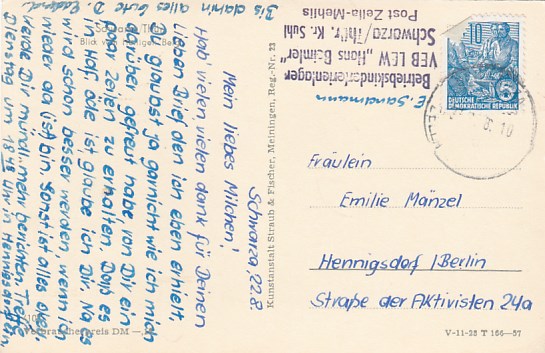 Schwarza, 22.8.
Mein liebes Milchen!
Hab' vielen, vielen dank für Deinen
lieben Brief, den ich eben erhielt,
Du glaubst ja garnicht wie ich mich
darüber gefreut habe, von Dir ein
paar Zeilen zu erhalten. Daß es
in doof, öde ist, glaube ich Dir. Na es
wird schon besser werden, wenn ich
wieder da (is) bin. Sonst ist alles
Werde Dir mündl. mehr berichten. Treffe
Dienstag um 18 Uhr in Hennigsdorf ein,
Bis dahin alles Gute D.
Schwarza/Thür.
Blick vom
Verbraucherpreis DM
Kunstanstalt Straub & Fischer, Meiningen, Reg.-Nr. 23
Betriebskinderferienlager
VEB LEW „Hans Beimler"
Schwarza/Thür. Kr. Suhl
Post Zella-Mehlis
E. Sandmann
10
DEUTSCHE
DEMOKRATISCHE REPUBLIK
Fräulein
Emilie Mänzel
Hennigsdorf/Berlin
Straße der Aktivisten 24a
V-11-28 T 166—57